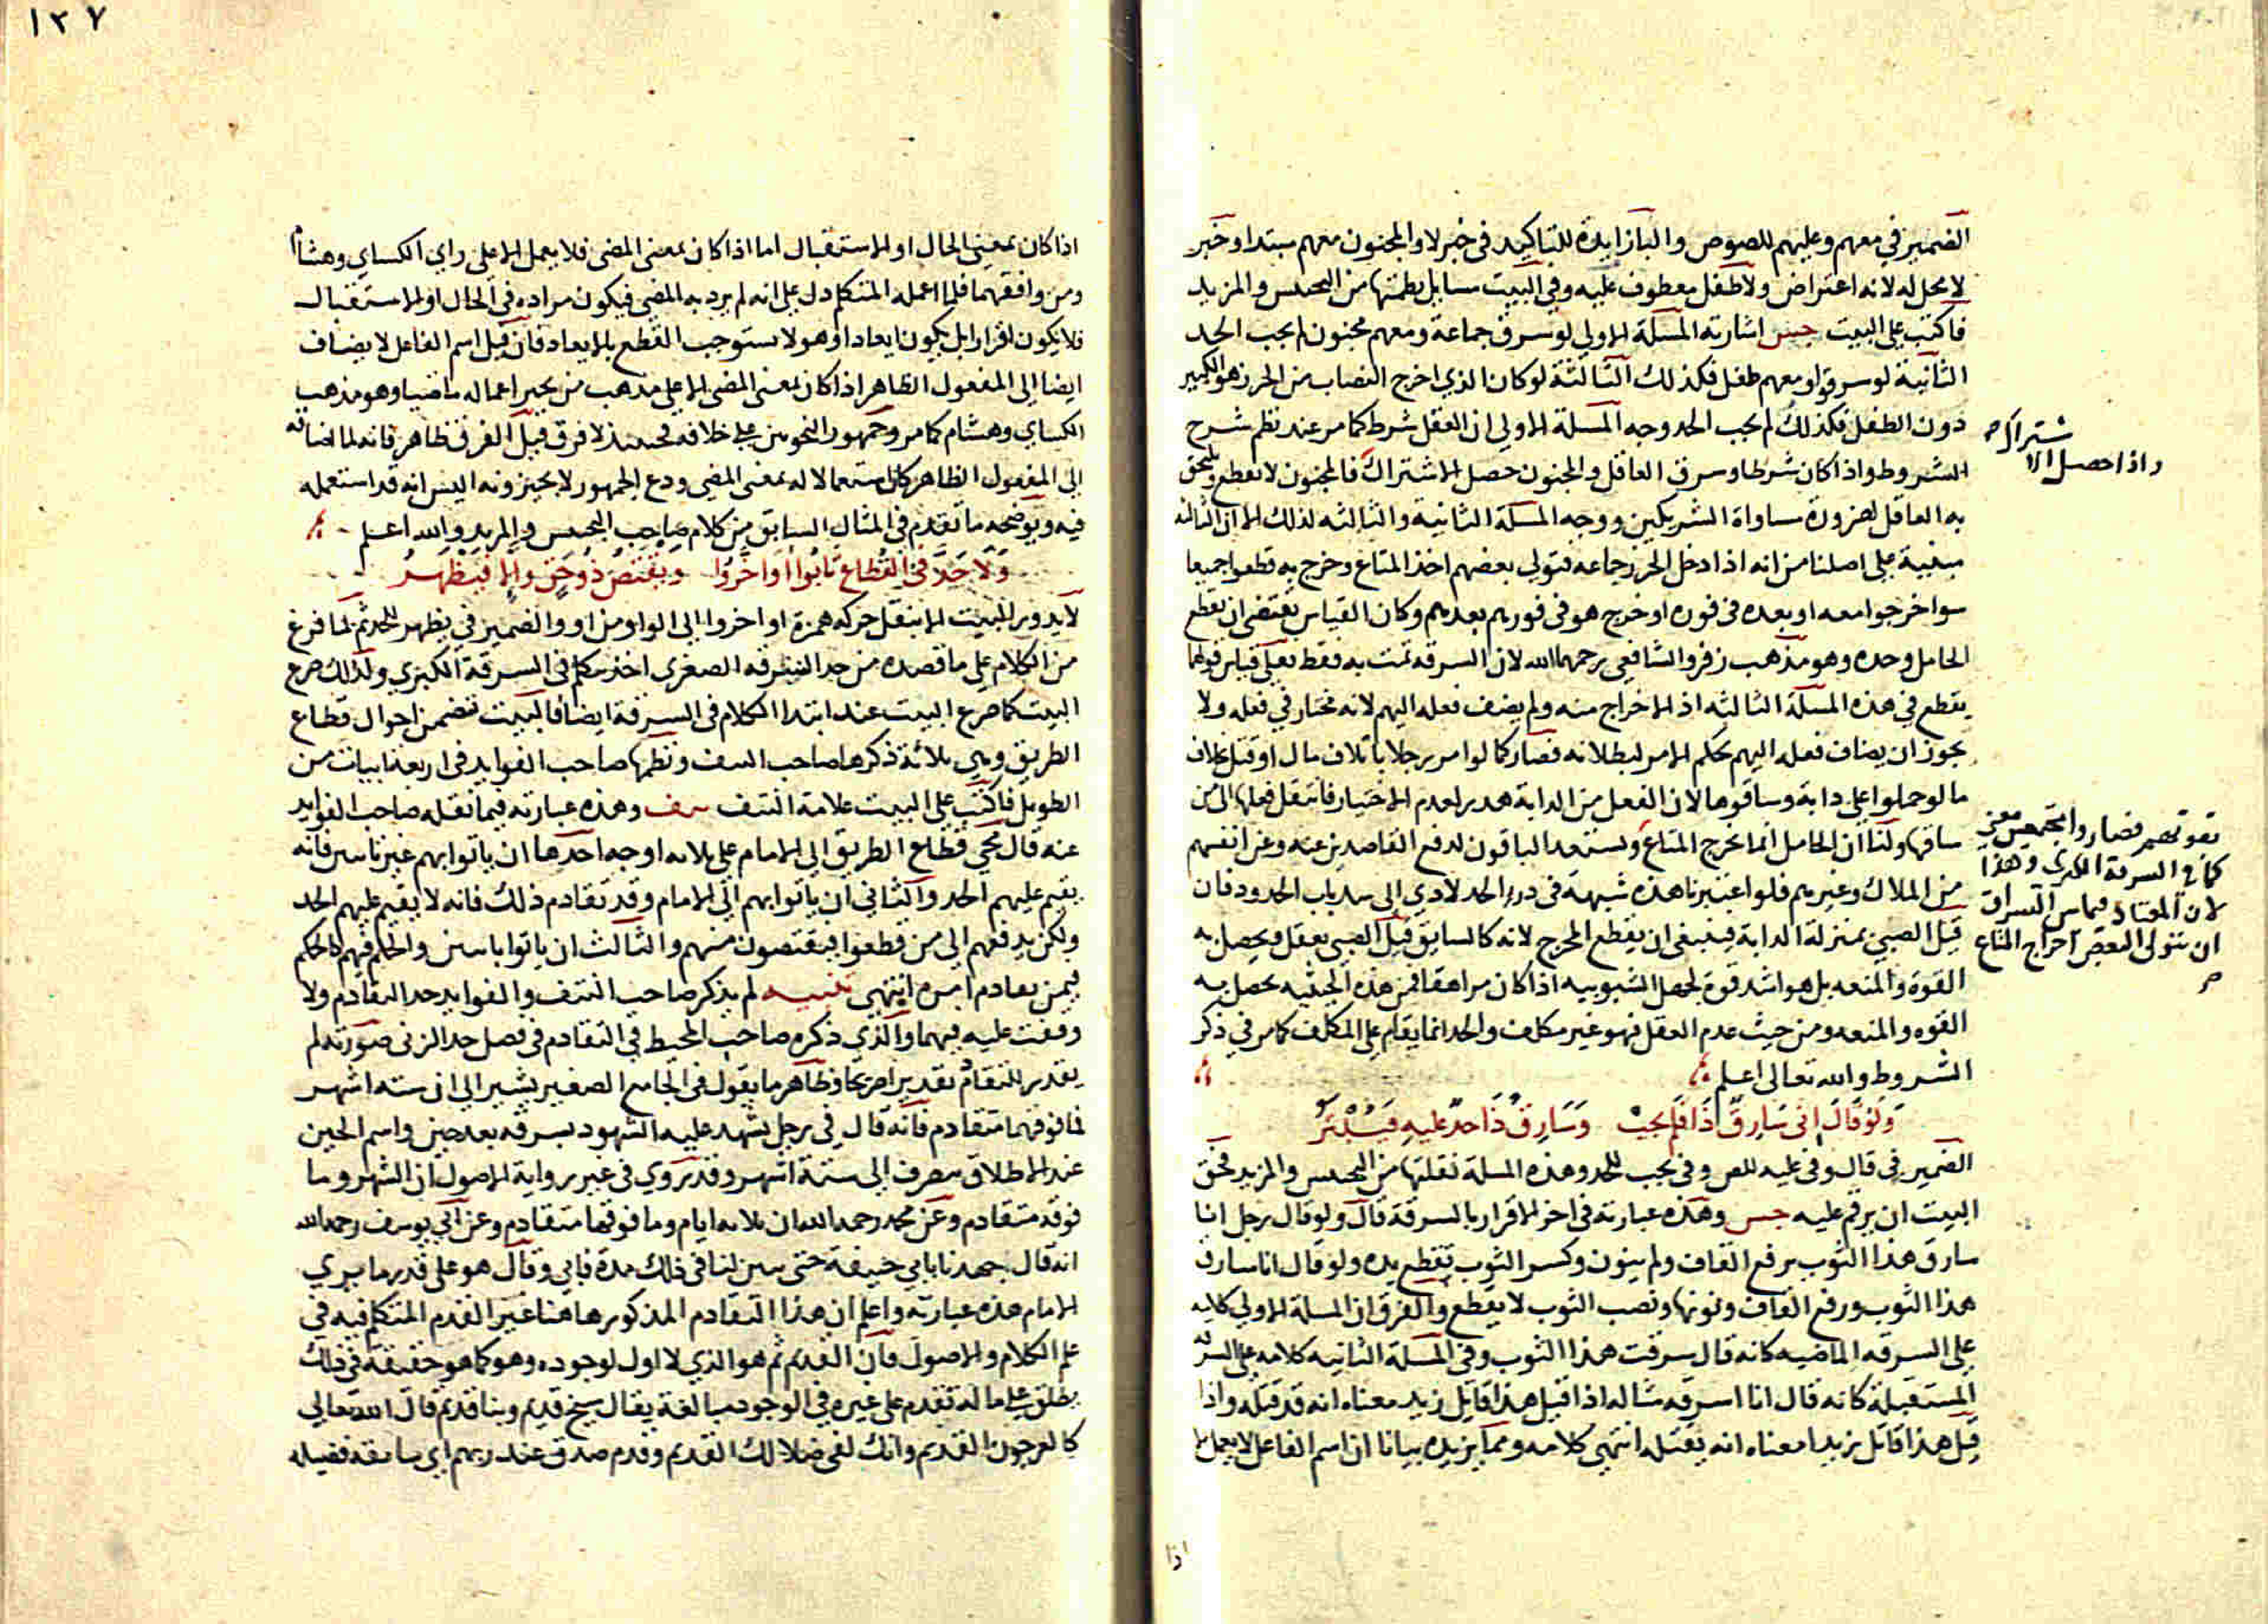 الضمير في معهم وعليهم للصوص والبا زايدة للتاكيد في خبر لا والمجنون معهم مبتدا وخبر
لا محل له لانه اعتراض ولا طفل معطوف عليه وفي البيت مسايل نظمتها من التجنيس والمزيد
فاكتب على البيت جس اشارته المسئلة الاولى لو سرق جماعة ومعهم مجنون لم يجب الحد
الثانية لو سرقوا ومعهم طفل فكذلك الثالثة لو كان الذي اخرج النصاب من الحرز هو الكبير
دون الطفل فكذلك لم يجب الحد وجه المسلة الاولى ان العقل شرط كما مر عند نظم شرح
الشروط واذا كان شرطا وسرق العاقل والمجنون حصل الاشتراك فالمجنون لا يقطع ويلحق
به العاقل لضرورة مساواة الشريكين ووجه المسلة الثانية والثالثه لذلك الا ان الثالثه
مبنية على اصلنا من انه اذا دخل الحرز جماعه فتولى بعضهم اخذ المتاع وخرج به قطعوا جميعا
سوا خرجوا معه او بعده في فوره او خرج هو في فورهم بعدهم وكان القياس يقتضى ان يقطع
الحامل وحده وهو مذهب زفر والشافعي رحمهما الله لان السرقه تمت به فقط فعلى قياس قولهما
يقطع في هذه المسلة الثالثه اذ الاخراج منه ولم يضف فعله اليهم لانه مختار في فعله ولا
يجوز ان يضاف فعله اليهم بحكم الامر لبطلانه فصار كما لو امر رجلا باتلاف مال او قتل بخلاف
ما لو حملوا على دابة وساقوها لان الفعل من الدابة هدر لعدم الاختيار فانتقل فعلها الى من
ساقها ولنا ان الحامل انما يخرج المتاع ويستعد الباقون لدفع القاصدين عنه وعن انفسهم
من الملاك وغيرهم فلو اعتبرنا هذه شبهة في درء الحد لادي الى سد باب الحدود فان
قيل الصبي بمنزلة الدابة فينبغي ان يقطع المخرج لانه كالسايق قيل الصبي يعقل ويحصل به
القوة والمنعه بل هو اشد قوة لجهل الشبوبيه اذا كان مراهقا فمن هذه الحيثيه يحصل به
القوه والمنعه ومن حيث عدم العقل فهو غير مكلف والحد انما يقام على المكلف كما مر في ذكر
الشروط والله تعالى اعلم
وَلَو قَالَ اِنى سَارِقٌ ذَا فَلَم يجبْ وَسَارِقُ ذَا حدٌ عليهِ
الضمير في قال وفي عليه للص وفي يجب للحد وهذه المسلة نقلتها من التجنيس والمزيد فحق
البيت ان يرقم عليه جس وهذه عبارته في اخر الاقرار بالسرقة قال ولو قال رجل انا
سارق هذا الثوب برفع القاف ولم ينون وكسر الثوب تقطع يده ولو قال انا سارق
هذا الثوب ورفع القاف ونونها ونصب الثوب لا يقطع والفرق ان المسلة الاولى كلامه
على السرقه الماضيه كانه قال سرقت هذا الثوب وفي المسلة الثانيه كلامه على السرقه
المستقبلة كانه قال انا اسرقه مثاله اذا قيل هذا قاتل زيد معناه انه قد قتله واذا
قيل هذا قاتل زيدا معناه انه يقتله انتهى كلامه ومما يزيده بيانا ان اسم الفاعل لا يعمل الا
اذا
اشتراك
واذا حصل الا
تقوتهم فصاروا مجتمعين معنى
كما في السرقة الكبرى وهذا
لان المعتاد فيما بين السراق
ان يتولى البعض اخراج المتاع
١٢٧
اذا كان بمعنى الحال او الاستقبال اما اذا كان بمعنى المضى فلا يعمل الا على راي الكساي وهشام
ومن وافقهما فلما اعمله المتكلم دل على انه لم يرد به المضى فيكون مراده في الحال او الاستقبال
فلا يكون اقرارا بل يكون ايعادا وهو لا يستوجب القطع بالايعاد فان قيل اسم الفاعل لا يضاف
ايضا الى المفعول الظاهر اذا كان بمعنى المضى الا على مذهب من يجيز اعماله ماضيا وهو مذهب
الكساي وهشام كما مر وجمهور النحويين على خلافه فحينئذ لا فرق قيل الفرق ظاهر فانه لما اضافه
الى المفعول الظاهر كان استعمالا له بمعنى المضى ودع الجمهور لا يجيزونه اليس انه قد استعمله
فيه ويوضحه ما تقدم في المثال السابق من كلام صاحب التجنيس والمزيد والله اعلم
وَلَا حَدَّ في القُطاع تابُوا اوَاخروُا ويقتصُ ذُو حَقٍ وإلا فيَظهرُ
لا يدور البيت الا بنقل حركه همزة او اخروا الى الواو من او والضمير في يظهر للحد ثم لما فرغ
من الكلام على ما قصده من حد السرقه الصغرى اخذ يتكلم في السرقة الكبرى ولذلك صرع
البيت كما صرع البيت عند ابتدا الكلام في السرقة ايضا فالبيت تتضمن احوال قطاع
الطريق وهي ثلاثة ذكرها صاحب النتف ونظمها صاحب الفوايد في اربعة ابيات من
الطويل فاكتب على البيت علامة النتف نتف وهذه عبارته فيما نقله صاحب الفوايد
عنه قال يجي قطاع الطريق الى الامام على ثلاثه اوجه احدها ان ياتوا بهم غير تايبين فانه
يقيم عليهم الحد والثاني ان ياتوا بهم الى الامام وقد تقادم ذلك فانه لا يقيم عليهم الحد
ولكن يدفعهم الى من قطعوا فيقتصون منهم والثالث ان ياتوا تايبين والحكم فيهم كالحكم
فيمن تقادم امره انتهى تنبيه لم يذكر صاحب النتف والفوايد حد التقادم ولا
وقفت عليه فيهما والذي ذكره صاحب المحيط في التقادم في فصل حد الزنى صورته لم
يقدر للتقادم تقديرا صريحا وظاهر ما يقول في الجامع الصغير يشير الى ان سته اشهر
فما فوقهما متقادم فانه قال في رجل شهد عليه الشهود بسرقه بعد حين واسم الحين
عند الاطلاق يصرف الى ستة اشهر وقد روي في غير رواية الاصول ان الشهر وما
فوقه متقادم وعن محمد رحمه الله ان ثلاثه ايام وما فوقها متقادم وعن ابي يوسف رحمه الله
انه قال جهدنا بابي حنيفة حتى يبين لنا في ذلك مدة فابى وقال هو على قدر ما يري
الامام هذه عبارته واعلم ان هذا التقادم المذكور هاهنا غير القدم المتكلم فيه في
علم الكلام والاصول فان القديم ثم هو الذي لا اول لوجوده وهو كما هو حقيقة في ذلك
يطلق على ما له تقدم على غيره في الوجود مبالغة يقال شيخ قديم وبنا قديم قال الله تعالى
كالعرجون القديم وانك لفى ضلالك القديم وقدم صدق عند ربهم اي سابقة فضيلة